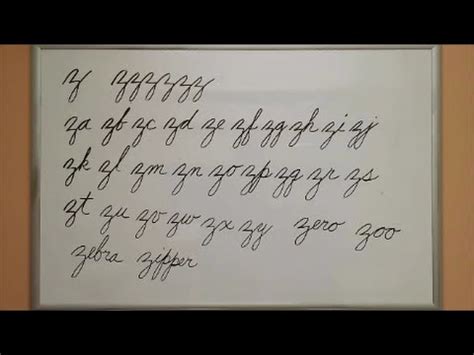 z zzzzzz
za zb zc zd ze zf zg zh zi zj
zk zl zm zn zo zp zq zr zs
zt zu zv zw zx zy zero zoo
zebra zipper